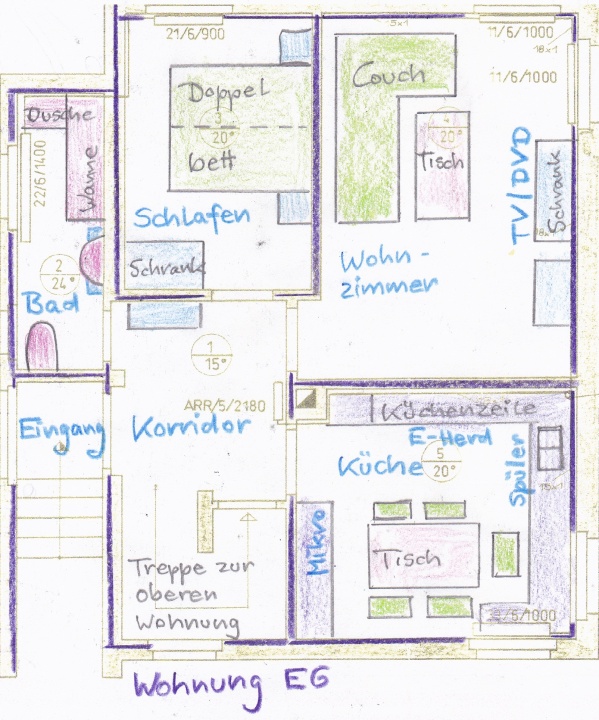 21/6/900
5x1
11/6/1000
18x1
11/6/1000
Doppel
3
20°
bett
Couch
4
20°
Tisch
TV/DVD
Schrank
Dusche
Wanne
22/6/1400
Schlafen
Schrank
Wohn-
zimmer
2
24°
Bad
1
15°
ARR/5/2180
Eingang
Korridor
Küchenzeile
E-Herd
Küche
5
20°
Spüler
Mikro
Tisch
Treppe zur
oberen
Wohnung
Wohnung EG